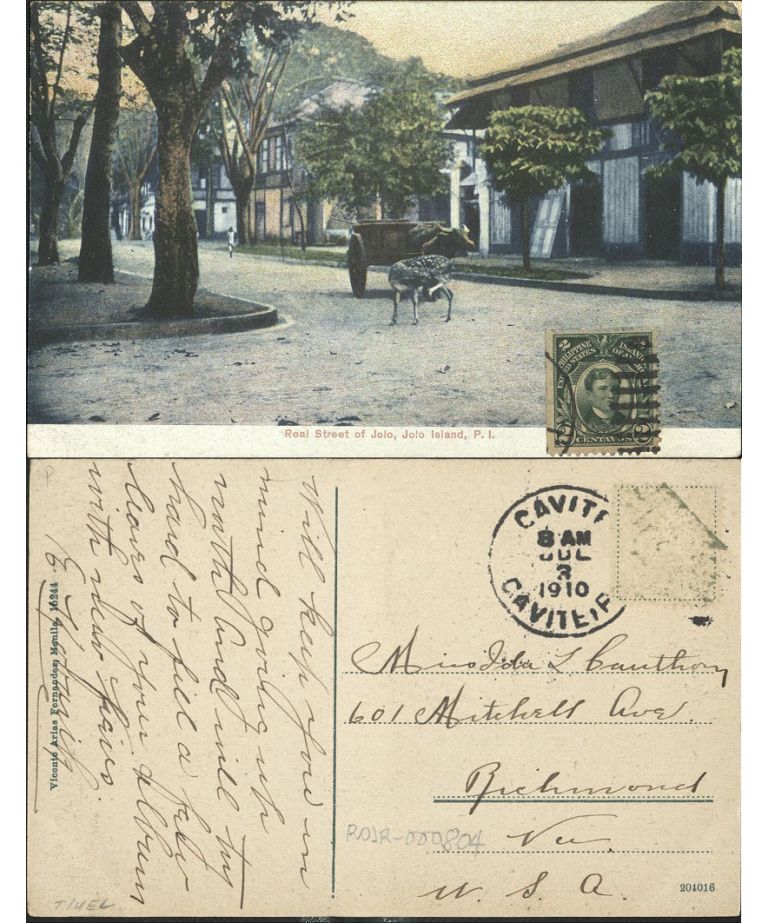 Real Street of Jolo, Jolo Island, P. I.
2 2
PHILIPPINE ISLANDS
UNITED STATES OF
CENTAVOS
Will keep you in
mind going up
north and will try
hard to fill a few
leaves of your album
with new views.
Vicente Arias Fernandez, Manila, 16244
CAVITE
8 AM
JUL
3
1910
CAVITE, P
Miss Ida L Cauthorn
601 Mitchell Ave.
Richmond
Va
U. S. A.
RDJR-000804
204016